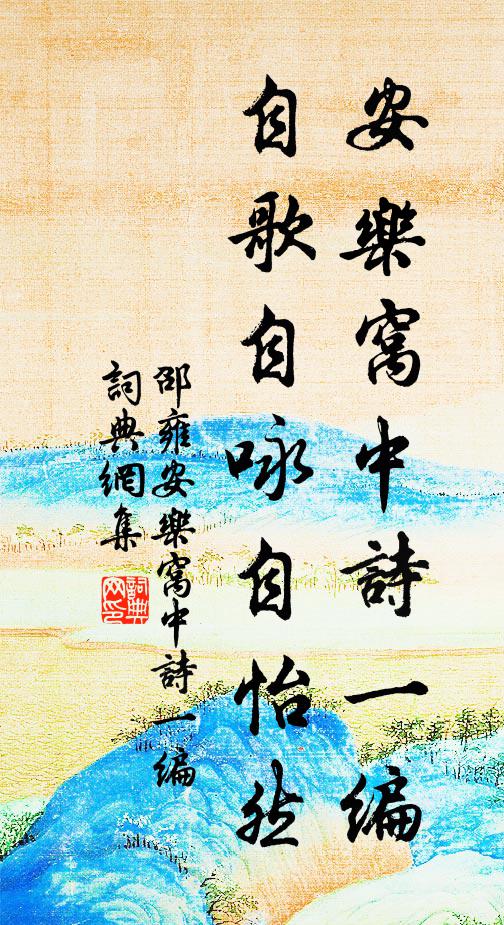 安樂窩中詩一編
自歌自咏自怡然
邵雍安樂窩中詩一編
詞典網集